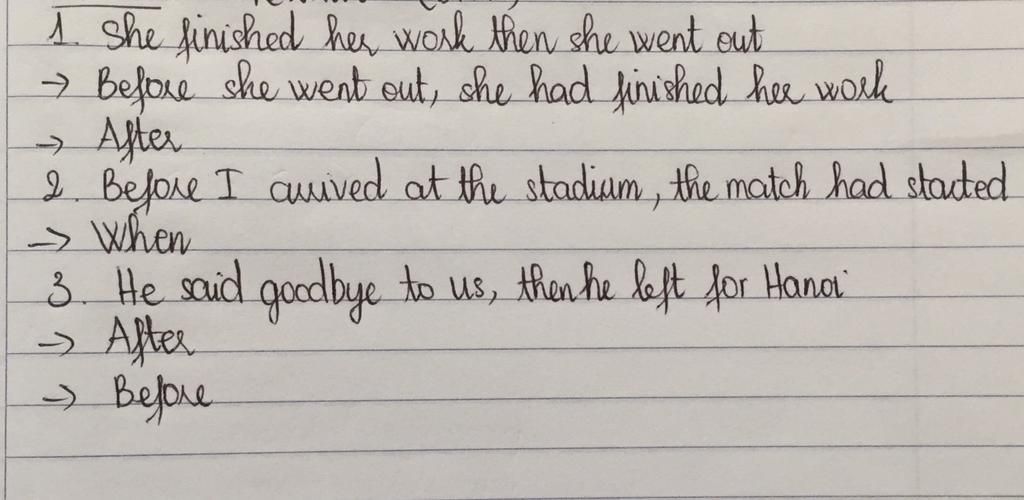 1. She finished her work then she went out
→ Before she went out, she had finished her work
→ After
2. Before I arrived at the stadium, the match had started
→ When
3. He said goodbye to us, then he left for Hanoi
→ After
→ Before